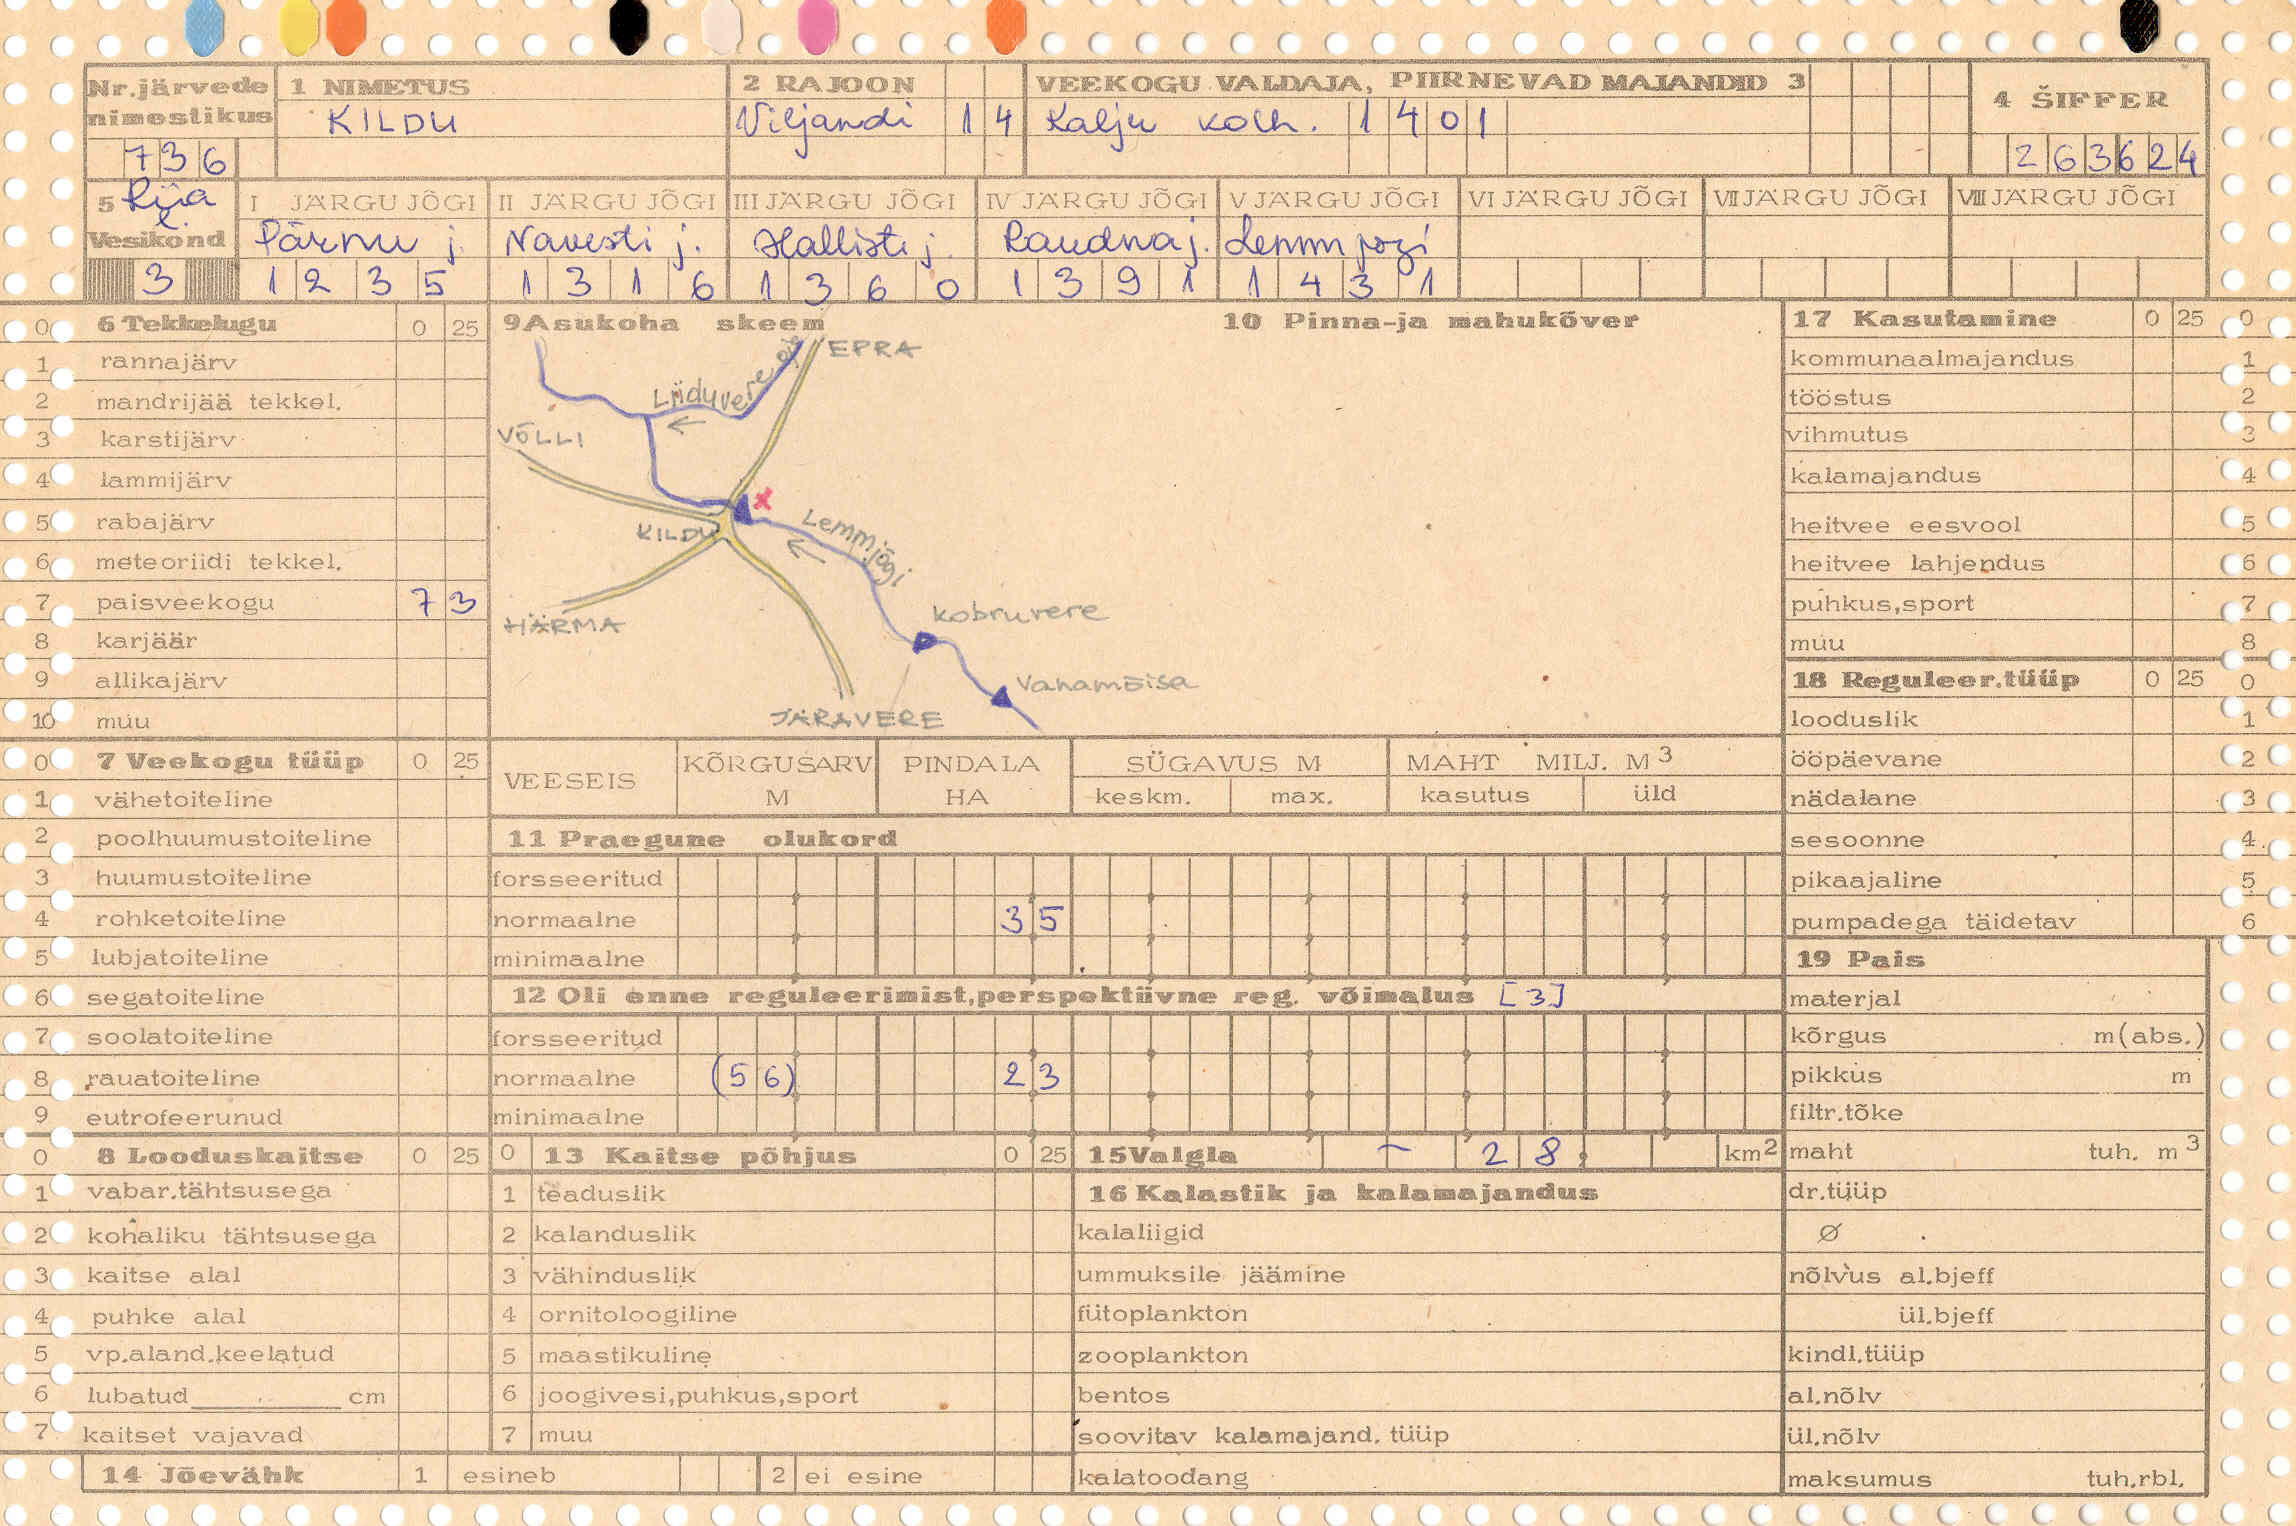 Nr.järvede 1 NIMETUS 2 RAJOON VEEKOGU VALDAJA, PIIRNEVAD MAJANDID 3 4 ŠIFFER
nimestikus KILDU Viljandi 14 Kalju kolh. 1401
736 263624
5 Riia l. I JÄRGU JÕGI II JÄRGU JÕGI III JÄRGU JÕGI IV JÄRGU JÕGI V JÄRGU JÕGI VI JÄRGU JÕGI VII JÄRGU JÕGI VIII JÄRGU JÕGI
Vesikond Pärnu j. Navesti j. Hallisti j. Raudna j. Lemmjõgi
3 1235 1316 1360 1391 1431
0 6 Tekkelugu 0 25
1 rannajärv
2 mandrijää tekkel.
3 karstijärv
4 lammijärv
5 rabajärv
6 meteoriidi tekkel.
7 paisveekogu 7 3
8 karjäär
9 allikajärv
10 muu
9 Asukoha skeem 10 Pinna-ja mahukõver
EPRA
Liiduvere oja
VÕLLI
x
KILDU
Lemmjõgi
HÄRMA
Kobruvere
Vanamõisa
JÄRAVERE
17 Kasutamine 0 25 0
kommunaalmajandus 1
tööstus 2
vihmutus 3
kalamajandus 4
heitvee eesvool 5
heitvee lahjendus 6
puhkus,sport 7
muu 8
18 Reguleer.tüüp 0 25 0
looduslik 1
ööpäevane 2
nädalane 3
sesoonne 4
pikaajaline 5
pumpadega täidetav 6
0 7 Veekogu tüüp 0 25
1 vähetoiteline
2 poolhuumustoiteline
3 huumustoiteline
4 rohketoiteline
5 lubjatoiteline
6 segatoiteline
7 soolatoiteline
8 rauatoiteline
9 eutrofeerunud
VEESEIS KÕRGUSARV M PINDALA HA SÜGAVUS M MAHT MILJ. M3
keskm. max. kasutus üld
11 Praegune olukord
forsseeritud
normaalne 35
minimaalne
12 Oli enne reguleerimist,perspektiivne reg. võimalus [3]
forsseeritud
normaalne (56) 23
minimaalne
19 Pais
materjal
kõrgus m(abs.)
pikkus m
filtr.tõke
maht tuh. m3
dr.tüüp
Ø
nõlvus al.bjeff
ül.bjeff
kindl.tüüp
al.nõlv
ül.nõlv
maksumus tuh.rbl.
0 8 Looduskaitse 0 25
1 vabar.tähtsusega
2 kohaliku tähtsusega
3 kaitse alal
4 puhke alal
5 vp.aland.keelatud
6 lubatud cm
7 kaitset vajavad
0 13 Kaitse põhjus 0 25
1 teaduslik
2 kalanduslik
3 vähinduslik
4 ornitoloogiline
5 maastikuline
6 joogivesi,puhkus,sport
7 muu
15 Valgla ~ 28 km2
16 Kalastik ja kalamajandus
kalaliigid
ummuksile jäämine
fütoplankton
zooplankton
bentos
soovitav kalamajand. tüüp
kalatoodang
14 Jõevähk 1 esineb 2 ei esine